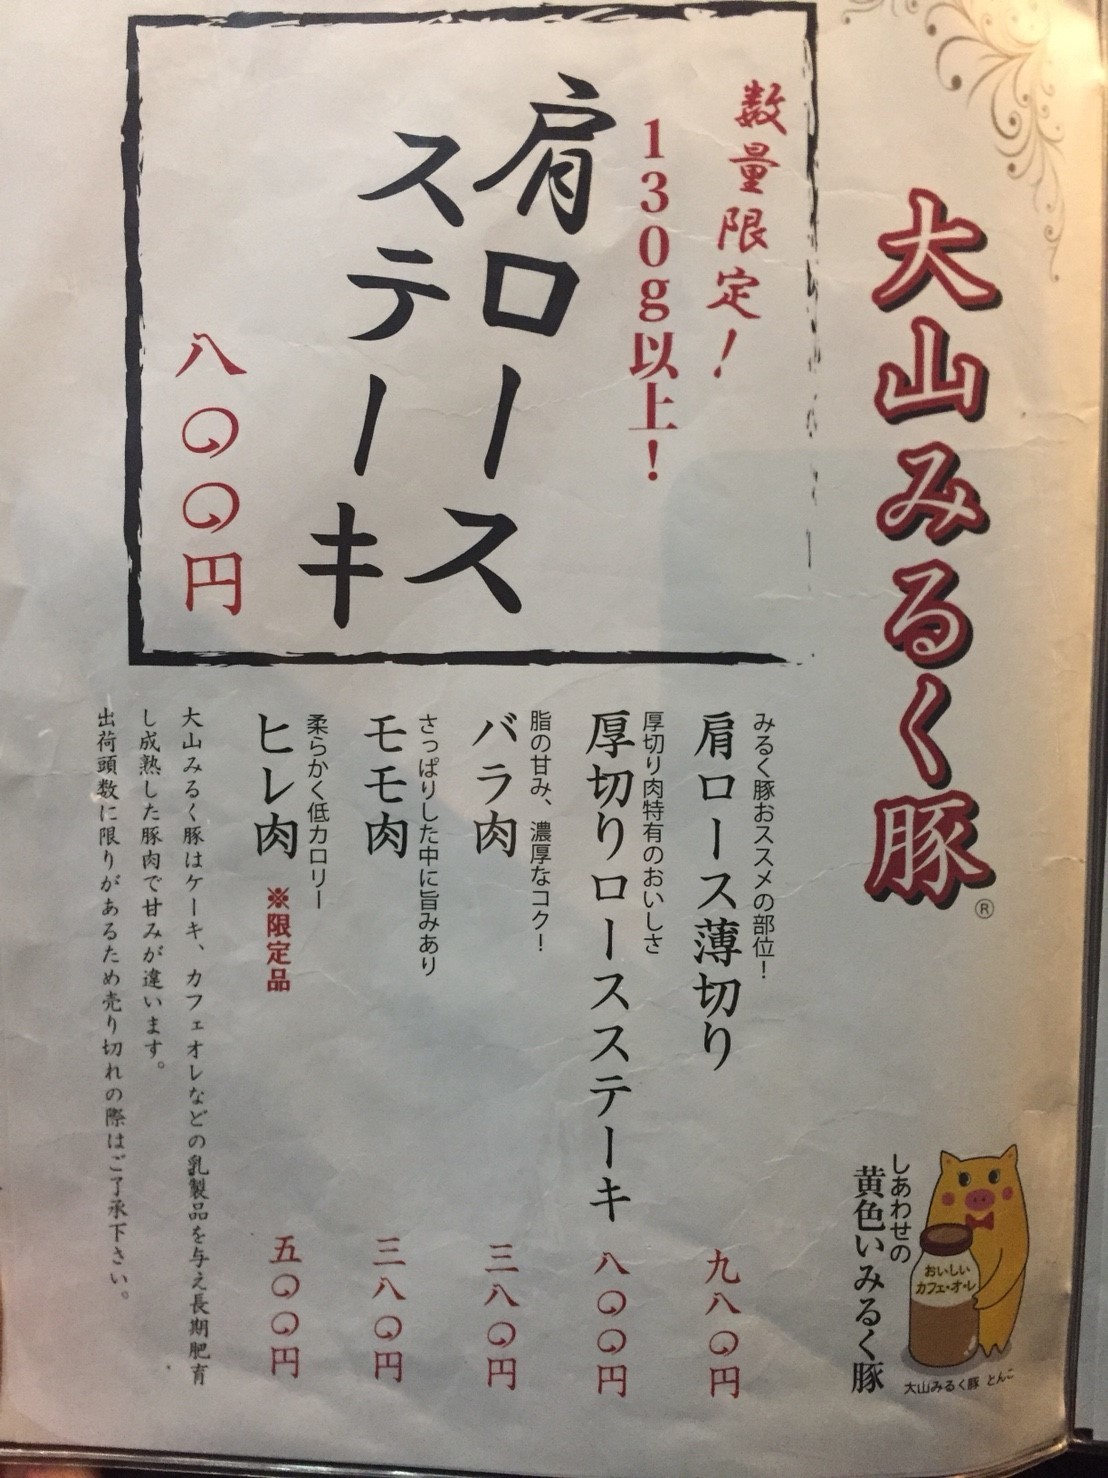 大山みるく豚®
数量限定!
130g以上!
肩ロース
ステーキ
八〇〇円
みるく豚おススメの部位!
肩ロース薄切り 九八〇円
厚切り肉特有のおいしさ
厚切りロースステーキ 八〇〇円
脂の甘み、濃厚なコク!
バラ肉 三八〇円
さっぱりした中に旨みあり
モモ肉 三八〇円
柔らかく低カロリー
ヒレ肉 ※限定品 五〇〇円
大山みるく豚はケーキ、カフェオレなどの乳製品を与え長期肥育
し成熟した豚肉で甘みが違います。
出荷頭数に限りがあるため売り切れの際はご了承下さい。
しあわせの
黄色いみるく豚
おいしい
カフェ・オ・レ
大山みるく豚 とんこ